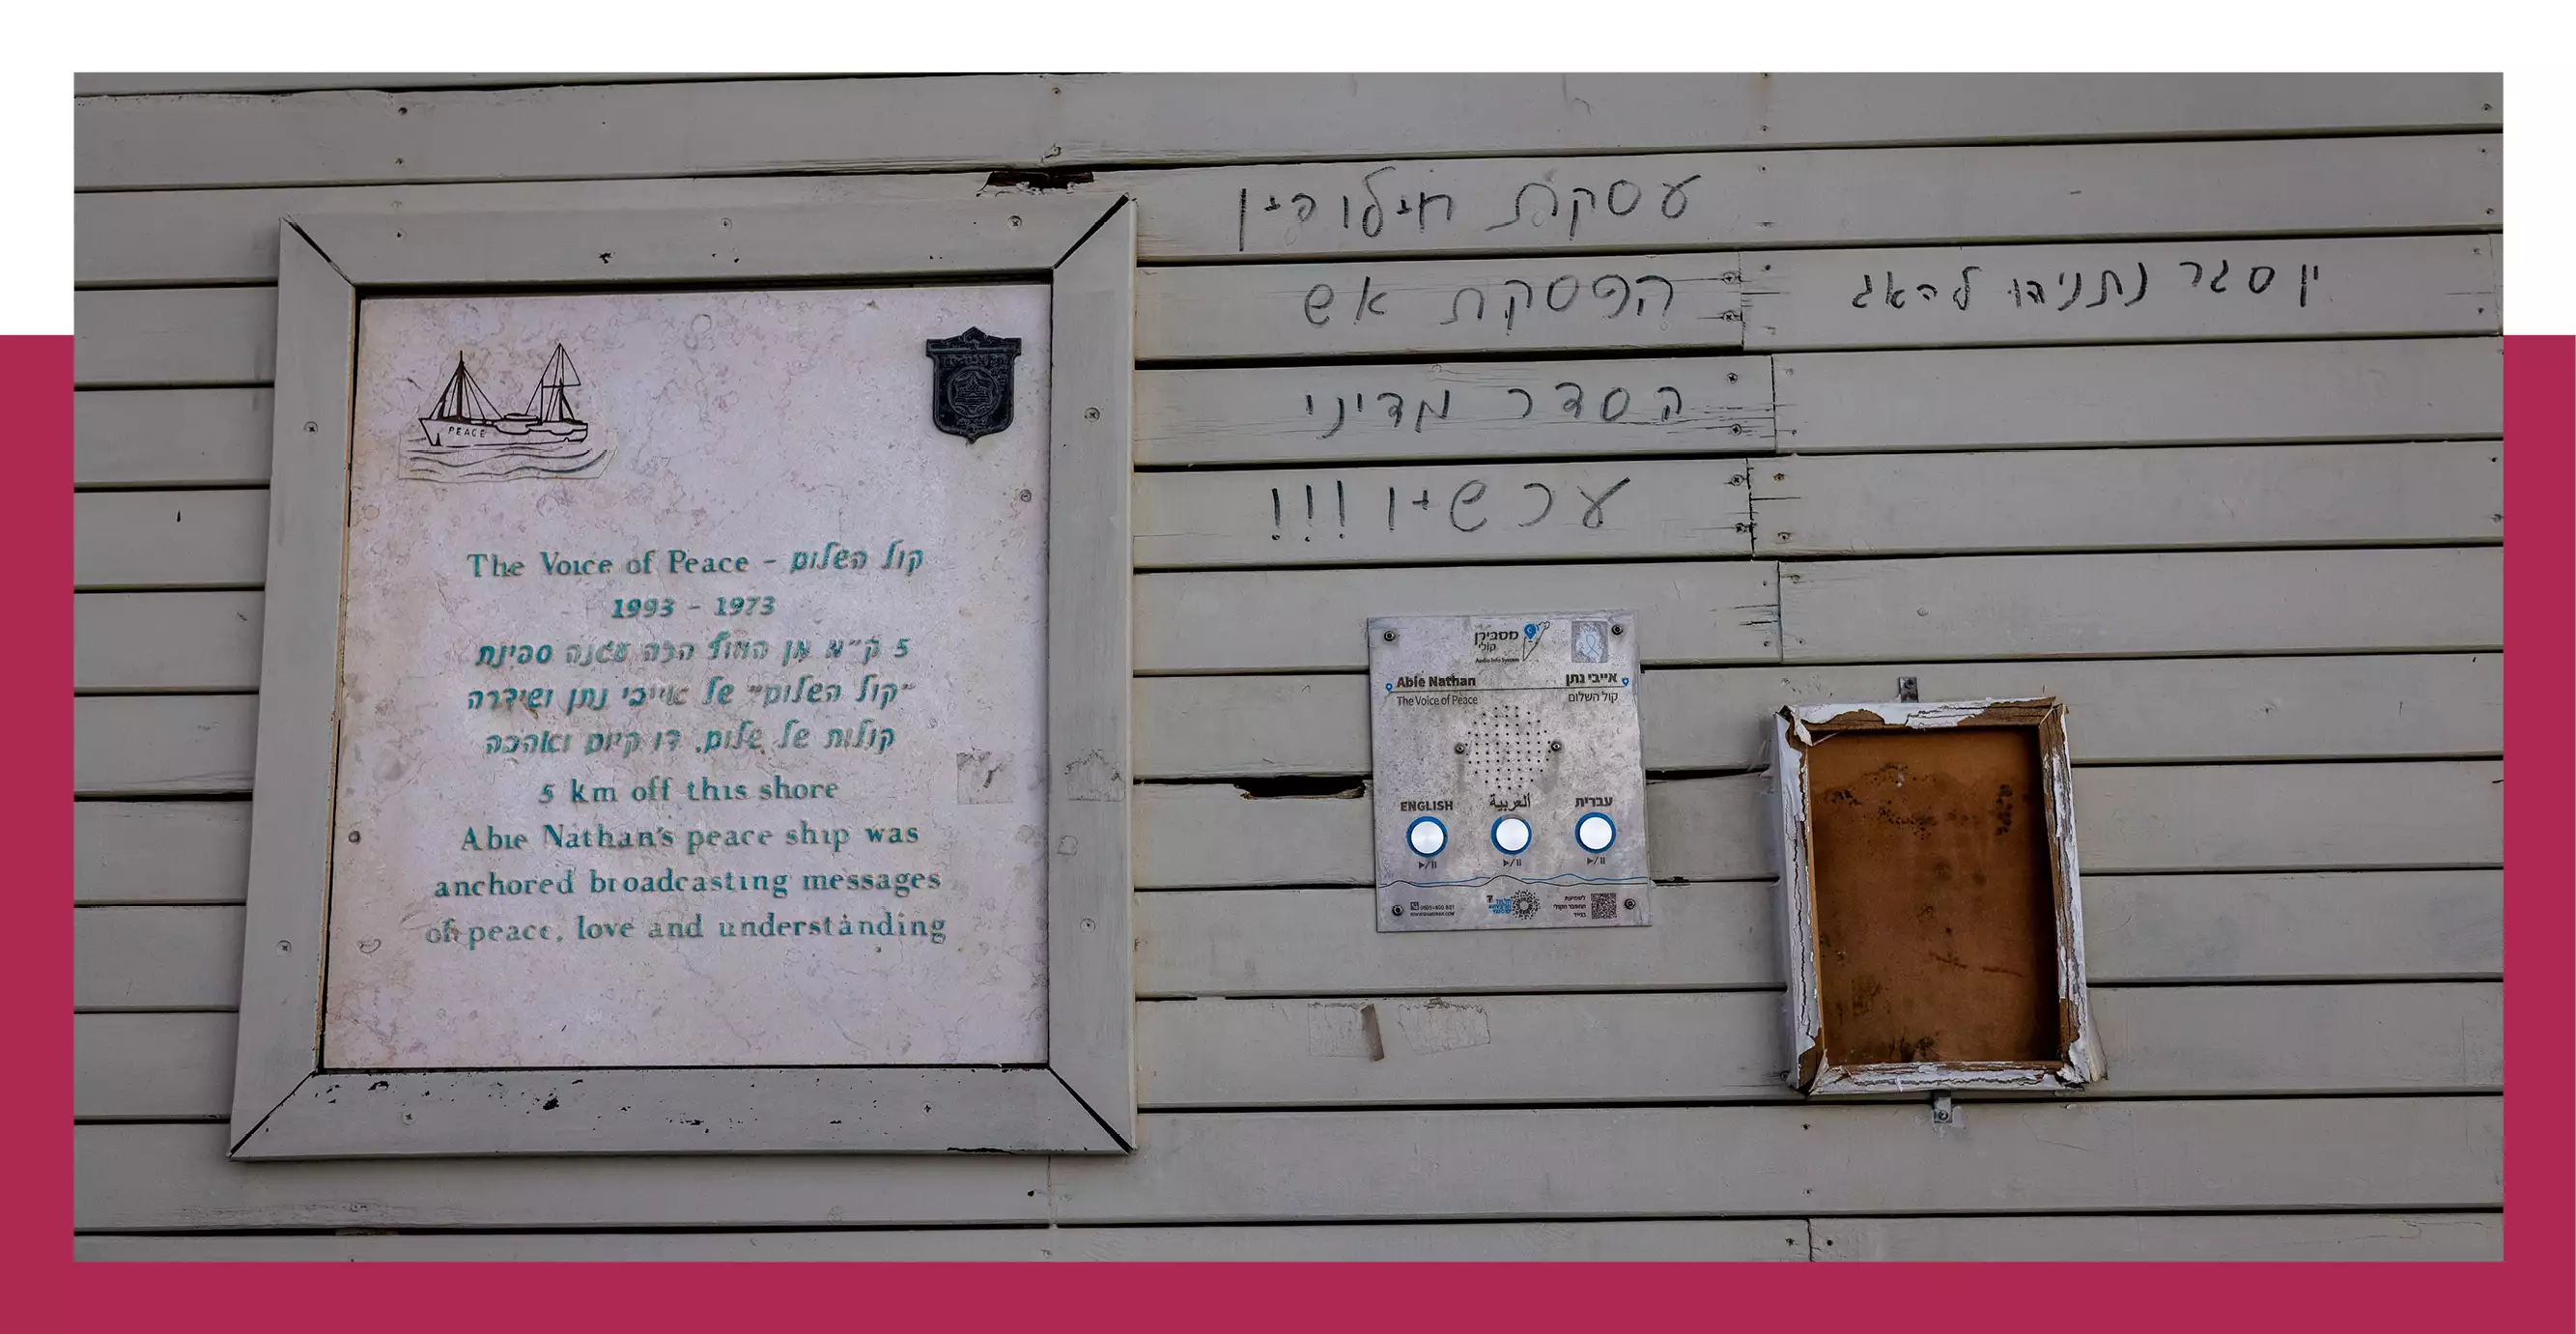 PEACE
The Voice of Peace - קול השלום
1993 - 1973
5 ק"מ מן החוף הזה עגנה ספינת
"קול השלום" של אייבי נתן ושידרה
קולות של שלום, דו קיום ואהבה
5 km off this shore
Abie Nathan's peace ship was
anchored broadcasting messages
of peace, love and understanding
עסקת חילופין
הפסקת אש
הסדר מדיני
עכשיו!!!
סגר נתניהו להאג
מסבירן
קולי
Audio Info System
Abie Nathan אייבי נתן
The Voice of Peace קול השלום
ENGLISH العربية עברית